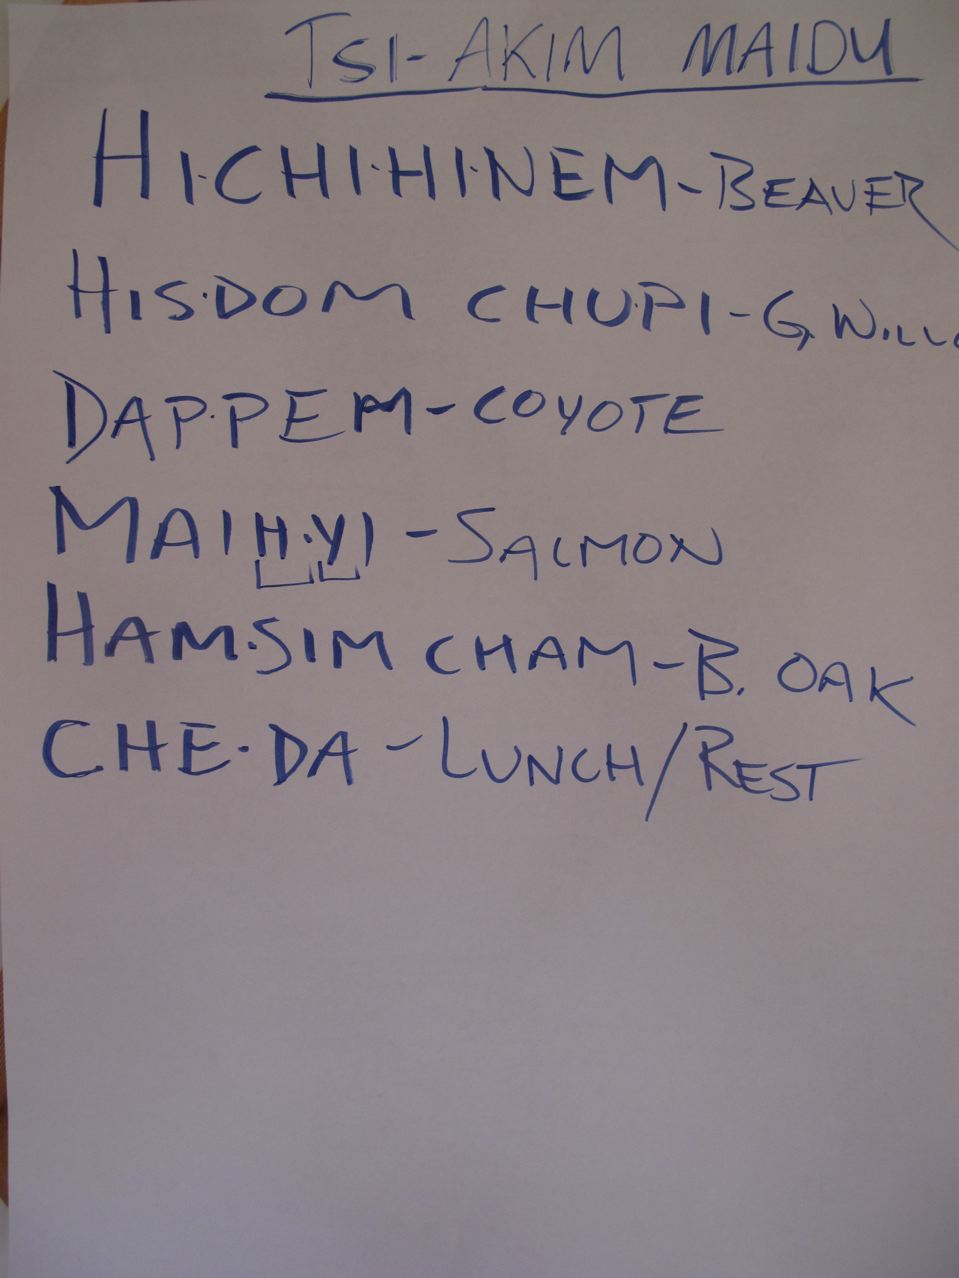 TSI-AKIM MAIDU
HI·CHI·HI·NEM-BEAVER
HIS·DOM CHU·PI-G, WILL
DAP·PEM-COYOTE
MAIH·YI-SALMON
HAM·SIM CHAM-B. OAK
CHE·DA-LUNCH/REST